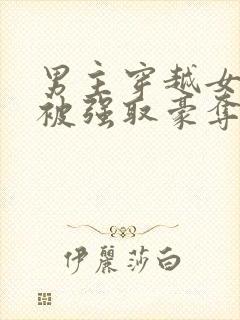 男主穿越女
被强取豪夺
伊麗莎白